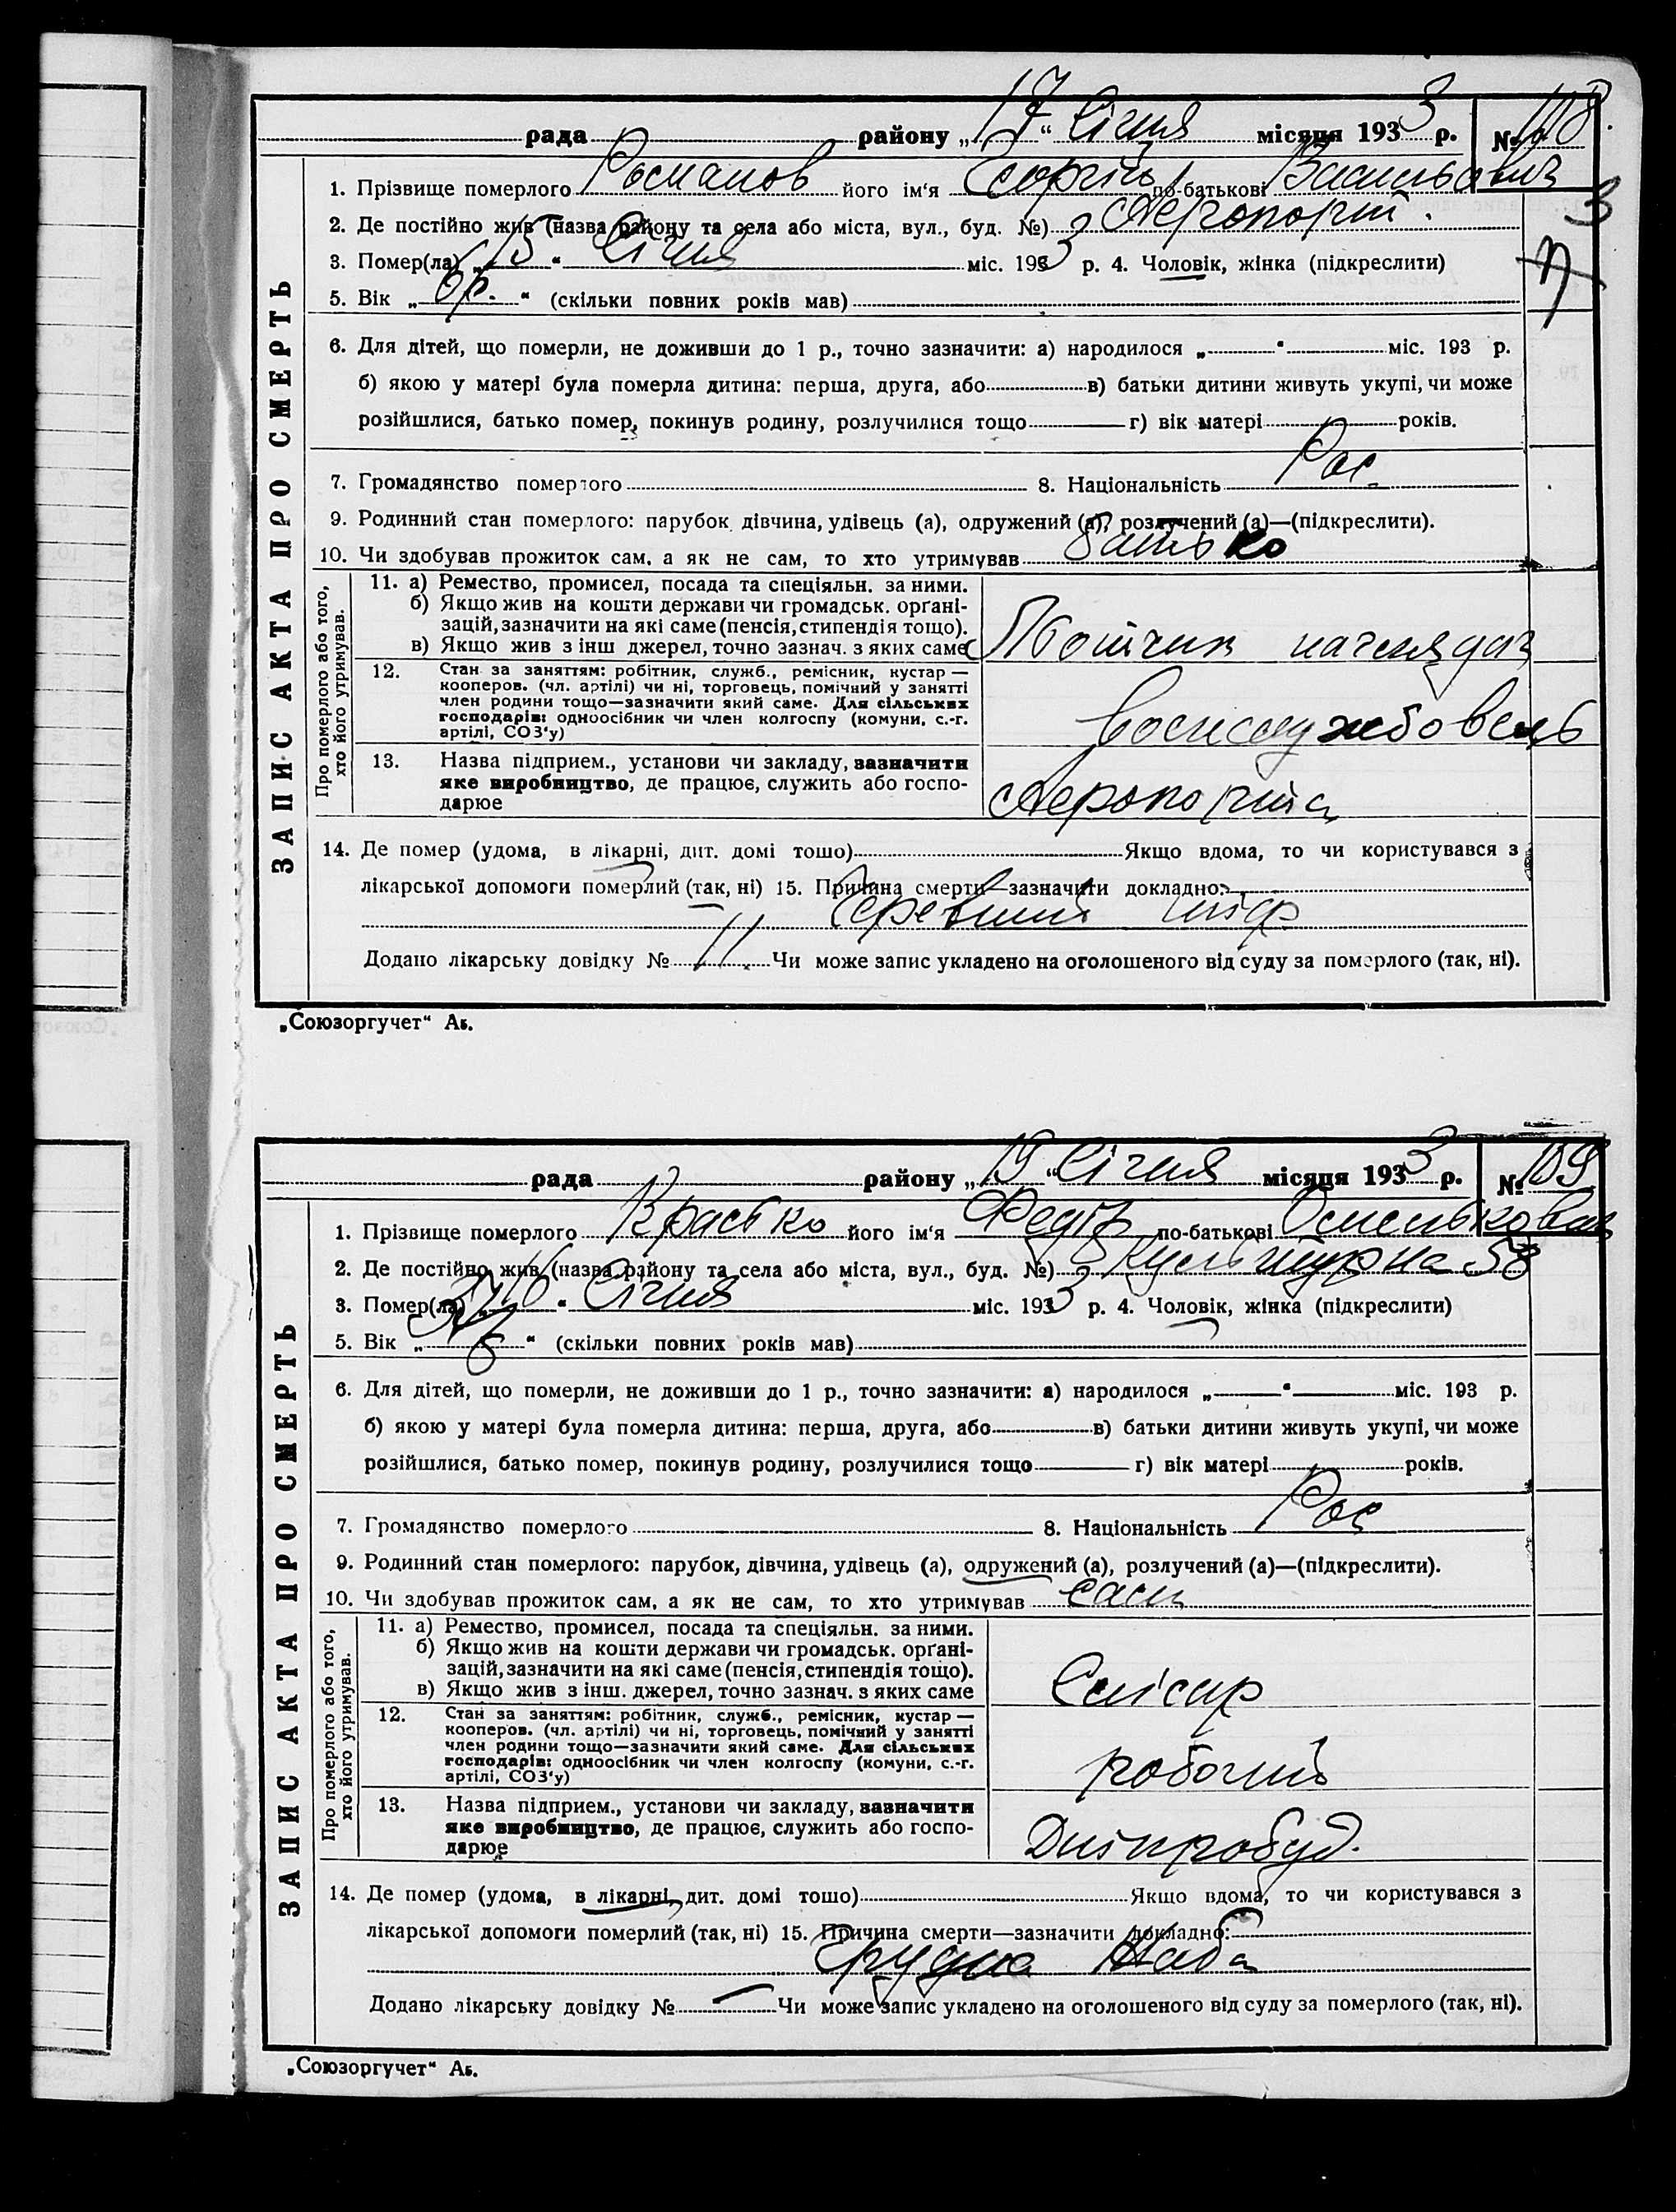 рада району „17“ Січня місяця 1933 р. № 108.
1. Прізвище померлого Романов його ім‘я Георгій по-батькові
2. Де постійно жив (назва району та села або міста, вул., буд. №) Аеропорт.
3. Помер(ла) „15“ Січня міс. 1933 р. 4. Чоловік, жінка (підкреслити)
5. Вік „6р.“ (скільки повних років мав)
6. Для дітей, що померли, не доживши до 1 р., точно зазначити: а) народилося „ “ міс. 193 р.
б) якою у матері була померла дитина: перша, друга, або в) батьки дитини живуть укупі, чи може
розійшлися, батько помер, покинув родину, розлучилися тощо г) вік матері років.
7. Громадянство померлого 8. Національність Рос.
9. Родинний стан померлого: парубок, дівчина, удівець (а), одружений (а), розлучений (а)—(підкреслити).
10. Чи здобував прожиток сам, а як не сам, то хто утримував батько
ЗАПИС АКТА ПРО СМЕРТЬ
Про померлого або того, хто його утримував.
11. а) Ремество, промисел, посада та спеціяльн. за ними.
б) Якщо жив на кошти держави чи громадськ. орґані-
зацій, зазначити на які саме (пенсія, стипендія тощо).
в) Якщо жив з інш джерел, точно зазнач. з яких саме
12. Стан за заняттям: робітник, служб., ремісник, кустар —
кооперов. (чл. артілі) чи ні, торговець, помічний у занятті
член родини тощо—зазначити який саме. Для сільських
господарів: одноосібник чи член колгоспу (комуни, с.-г.
артілі, СОЗ‘у)
воєнслужбовець
13. Назва підприєм., установи чи закладу, зазначити
яке виробництво, де працює, служить або госпо-
дарює
Аеропорта
14. Де помер (удома, в лікарні, дит. домі тощо) Якщо вдома, то чи користувався з
лікарської допомоги померлий (так, ні) 15. Причина смерти—зазначити докладно:
Черевний тіф
Додано лікарську довідку № 11. Чи може запис укладено на оголошеного від суду за померлого (так, ні).
„Союзоргучет“ Аб.
рада району „19“ Січня місяця 1933 р. № 109
1. Прізвище померлого його ім‘я Федір по-батькові
2. Де постійно жив (назва району та села або міста, вул., буд. №) Культурна 58
3. Помер(ла) „16“ Січня міс. 1933 р. 4. Чоловік, жінка (підкреслити)
5. Вік „ “ (скільки повних років мав)
6. Для дітей, що померли, не доживши до 1 р., точно зазначити: а) народилося „ “ міс. 193 р.
б) якою у матері була померла дитина: перша, друга, або в) батьки дитини живуть укупі, чи може
розійшлися, батько помер, покинув родину, розлучилися тощо г) вік матері років.
7. Громадянство померлого 8. Національність Рос
9. Родинний стан померлого: парубок, дівчина, удівець (а), одружений (а), розлучений (а)—(підкреслити).
10. Чи здобував прожиток сам, а як не сам, то хто утримував сам
ЗАПИС АКТА ПРО СМЕРТЬ
Про померлого або того, хто його утримував.
11. а) Ремество, промисел, посада та спеціяльн. за ними.
б) Якщо жив на кошти держави чи громадськ. орґані-
зацій, зазначити на які саме (пенсія, стипендія тощо).
в) Якщо жив з інш. джерел, точно зазнач. з яких саме
Слісар
12. Стан за заняттям: робітник, служб., ремісник, кустар —
кооперов. (чл. артілі) чи ні, торговець, помічний у занятті
член родини тощо—зазначити який саме. Для сільських
господарів: одноосібник чи член колгоспу (комуни, с.-г.
артілі, СОЗ‘у)
робочий
13. Назва підприєм., установи чи закладу, зазначити
яке виробництво, де працює, служить або госпо-
дарює
Дніпробуд.
14. Де помер (удома, в лікарні, дит. домі тощо) Якщо вдома, то чи користувався з
лікарської допомоги померлий (так, ні) 15. Причина смерти—зазначити докладно:
Грудна жаба
Додано лікарську довідку № — Чи може запис укладено на оголошеного від суду за померлого (так, ні).
„Союзоргучет“ Аб.